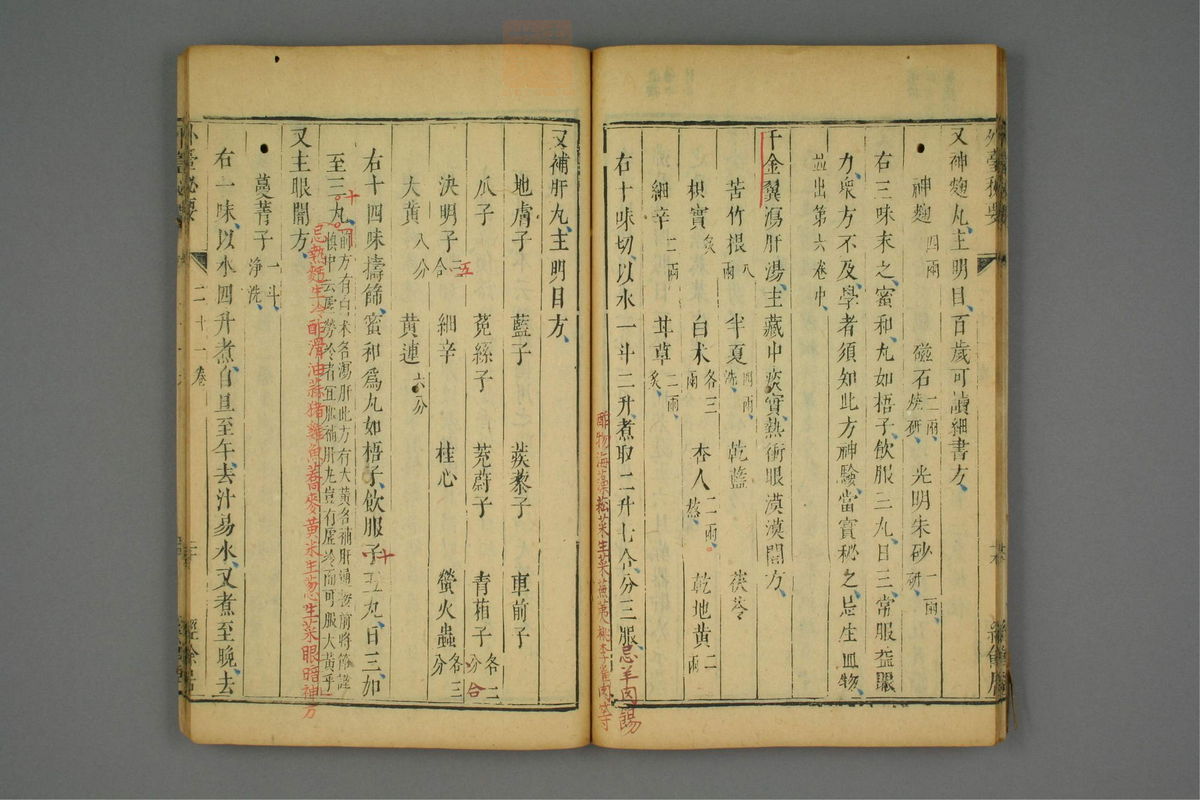 又神麴丸主明目百歲可讀細書方
神麴四兩 磁石二兩燒研 光明朱砂一兩研
右三味末之蜜和丸如梧子飲服三丸日三常服益眼
力衆方不及學者須知此方神驗當寶秘之忌生血物
並出第六卷中
千金翼瀉肝湯主藏中痰實熱衝眼漠漠闇方
苦竹根八兩 半夏四兩洗 乾藍 茯苓
枳實炙 白朮各三兩 杏人二兩熬 乾地黃二兩
細辛二兩 甘草二兩炙
右十味切以水一斗二升煮取二升七合分三服忌羊肉餳
酢物海藻菘菜生菜蕪荑桃李雀肉等
又補肝丸主明目方
地膚子 藍子 蒺藜子 車前子
瓜子 菟絲子 茺蔚子 青葙子各二合
决明子五合 細辛 桂心 螢火蟲各三分
大黃八分 黃連六分
右十四味擣篩蜜和爲丸如梧子飲服十五丸日三加
至三十丸前方有白朮各瀉肝此方有大黃各補肝
慎中云虛勞冷者宜服補肝丸豈有虛冷而可服大黃乎
忌熱麵生冷酢滑油蒜猪雞魚蕎麥黃米生葱生菜眼暗神方
又主眼闇方
蔓菁子一斗淨洗
右一味以水四升煮自旦至午去汁易水又煮至晚去
外臺秘要
二十一卷
經餘居